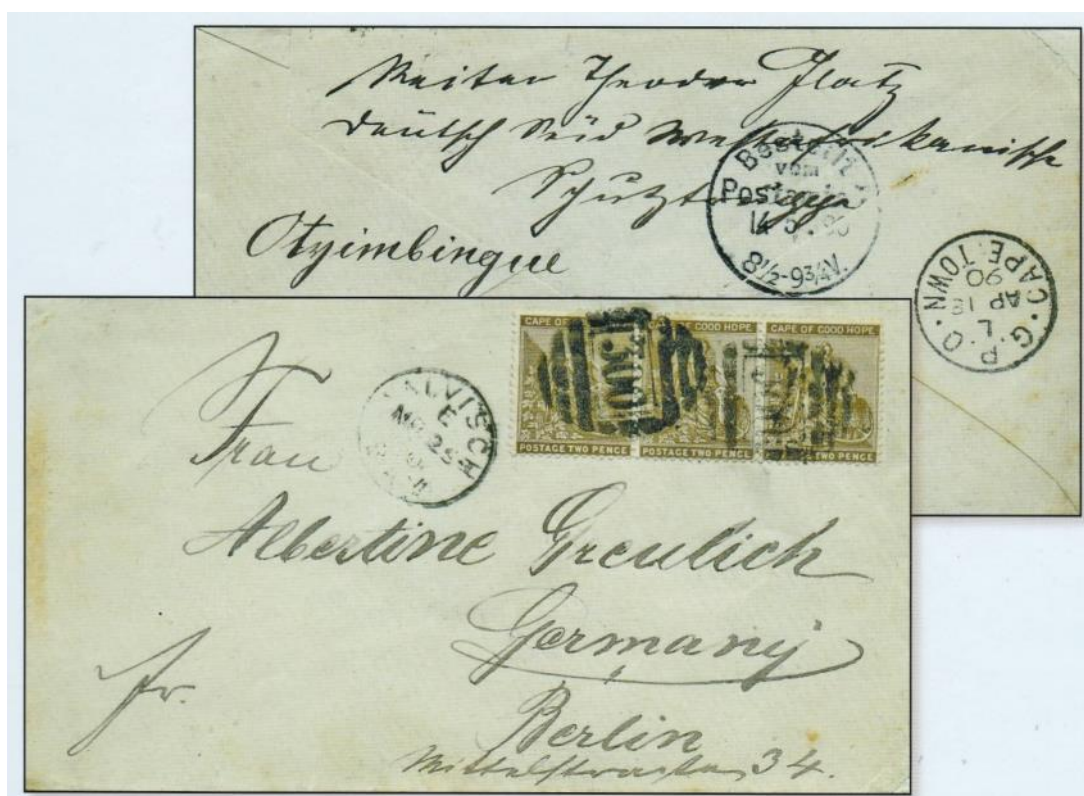 Reiter Theodor Platz
Deutsch Süd Westafrikanische
Schutztruppe
Otyimbingue
Bestellt
vom
Postamte
14 5 90
8½-9¾V.
G.P.O. CAPE TOWN
L
AP 18
90
CAPE OF GOOD HOPE CAPE OF GOOD HOPE CAPE OF GOOD HOPE
300
POSTAGE TWO PENCE POSTAGE TWO PENCE POSTAGE TWO PENCE
WALVISCH
E
MR 25
Frau
Albertine Greulich
Germany
fr.
Berlin
Mittelstrasse 34.